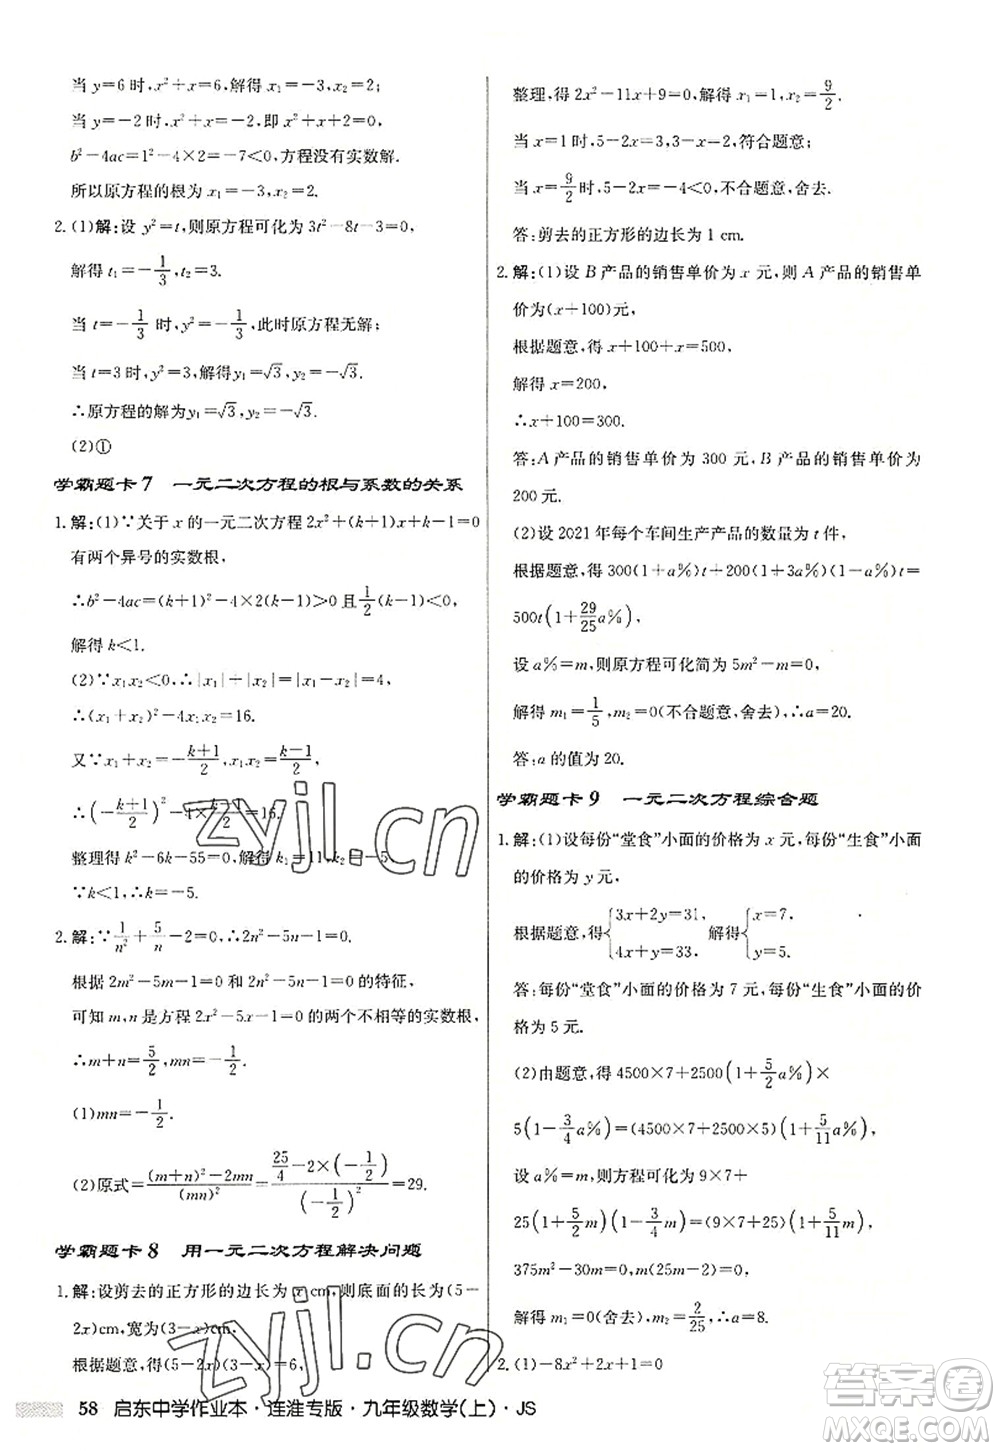 当 y=6 时,x²+x=6,解得 x₁=-3,x₂=2;
当 y=-2 时,x²+x=-2,即 x²+x+2=0,
b²-4ac=1²-4×2=-7<0,方程没有实数解.
所以原方程的根为 x₁=-3,x₂=2.
2. (1)解:设 y²=t,则原方程可化为 3t²-8t-3=0,
解得 t₁=-1/3,t₂=3.
当 t=-1/3 时,y²=-1/3,此时原方程无解;
当 t=3 时,y²=3,解得 y₁=√3,y₂=-√3.
∴原方程的解为 y₁=√3,y₂=-√3.
(2)①
学霸题卡 7 一元二次方程的根与系数的关系
1. 解:(1)∵关于 x 的一元二次方程 2x²+(k+1)x+k-1=0
有两个异号的实数根,
∴b²-4ac=(k+1)²-4×2(k-1)>0 且 1/2(k-1)<0,
解得 k<1.
(2)∵x₁x₂<0,∴|x₁|+|x₂|=|x₁-x₂|=4,
∴(x₁+x₂)²-4x₁x₂=16.
又∵x₁+x₂=-(k+1)/2,x₁x₂=(k-1)/2,
∴(-(k+1)/2)²-4×(k-1)/2=16.
整理得 k²-6k-55=0,解得 k₁=11,k₂=-5.
∵k<1,∴k=-5.
2. 解:∵1/n²+5/n-2=0,∴2n²-5n-1=0.
根据 2m²-5m-1=0 和 2n²-5n-1=0 的特征,
可知 m,n 是方程 2x²-5x-1=0 的两个不相等的实数根,
∴m+n=5/2,mn=-1/2.
(1)mn=-1/2.
(2)原式=((m+n)²-2mn)/(mn)²=(25/4-2×(-1/2))/(-1/2)²=29.
学霸题卡 8 用一元二次方程解决问题
1. 解:设剪去的正方形的边长为 x cm,则底面的长为(5-
2x)cm,宽为(3-x)cm,
根据题意,得(5-2x)(3-x)=6,
58 启东中学作业本·连淮专版·九年级数学(上)·JS
整理,得 2x²-11x+9=0,解得 x₁=1,x₂=9/2.
当 x=1 时,5-2x=3,3-x=2,符合题意;
当 x=9/2 时,5-2x=-4<0,不符合题意,舍去.
答:剪去的正方形的边长为 1 cm.
2. 解:(1)设 B 产品的销售单价为 x 元,则 A 产品的销售单
价为(x+100)元,
根据题意,得 x+100+x=500,
解得 x=200.
∴x+100=300.
答:A 产品的销售单价为 300 元,B 产品的销售单价为
200 元.
(2)设 2021 年每个车间生产产品的数量为 t 件,
根据题意,得 300(1+a%)t+200(1+3a%)(1-a%)t=
500t(1+29/25a%),
设 a%=m,则原方程可化简为 5m²-m=0,
解得 m₁=1/5,m₂=0(不合题意,舍去),∴a=20.
答:a 的值为 20.
学霸题卡 9 一元二次方程综合题
1. 解:(1)设每份“堂食”小面的价格为 x 元,每份“生食”小面
的价格为 y 元,
根据题意,得{3x+2y=31, 4x+y=33. 解得{x=7, y=5.
答:每份“堂食”小面的价格为 7 元,每份“生食”小面的价格
为 5 元.
(2)由题意,得 4500×7+2500(1+5/2a%)×
5(1-3/4a%)=(4500×7+2500×5)(1+5/11a%),
设 a%=m,则方程可化为 9×7+
25(1+5/2m)(1-3/4m)=(9×7+25)(1+5/11m),
375m²-30m=0,
解得 m₁=0(舍去),m₂=2/25,∴a=8.
2. (1)-8x²+x+1=0
zyjl.cn
zyjl.cn
答案圈
MXQE.COM